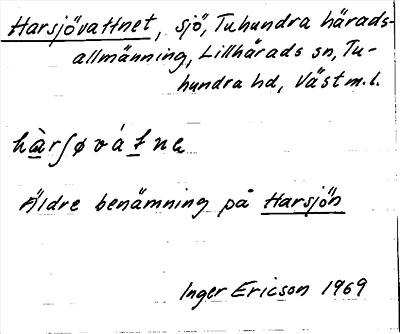 Harsjövattnet, sjö, Tuhundra härads-
allmänning, Lillhärads sn, Tu-
hundra hd, Västm.l.
hàrʃøvátnə
Äldre benämning på Harsjön
Inger Ericson 1969